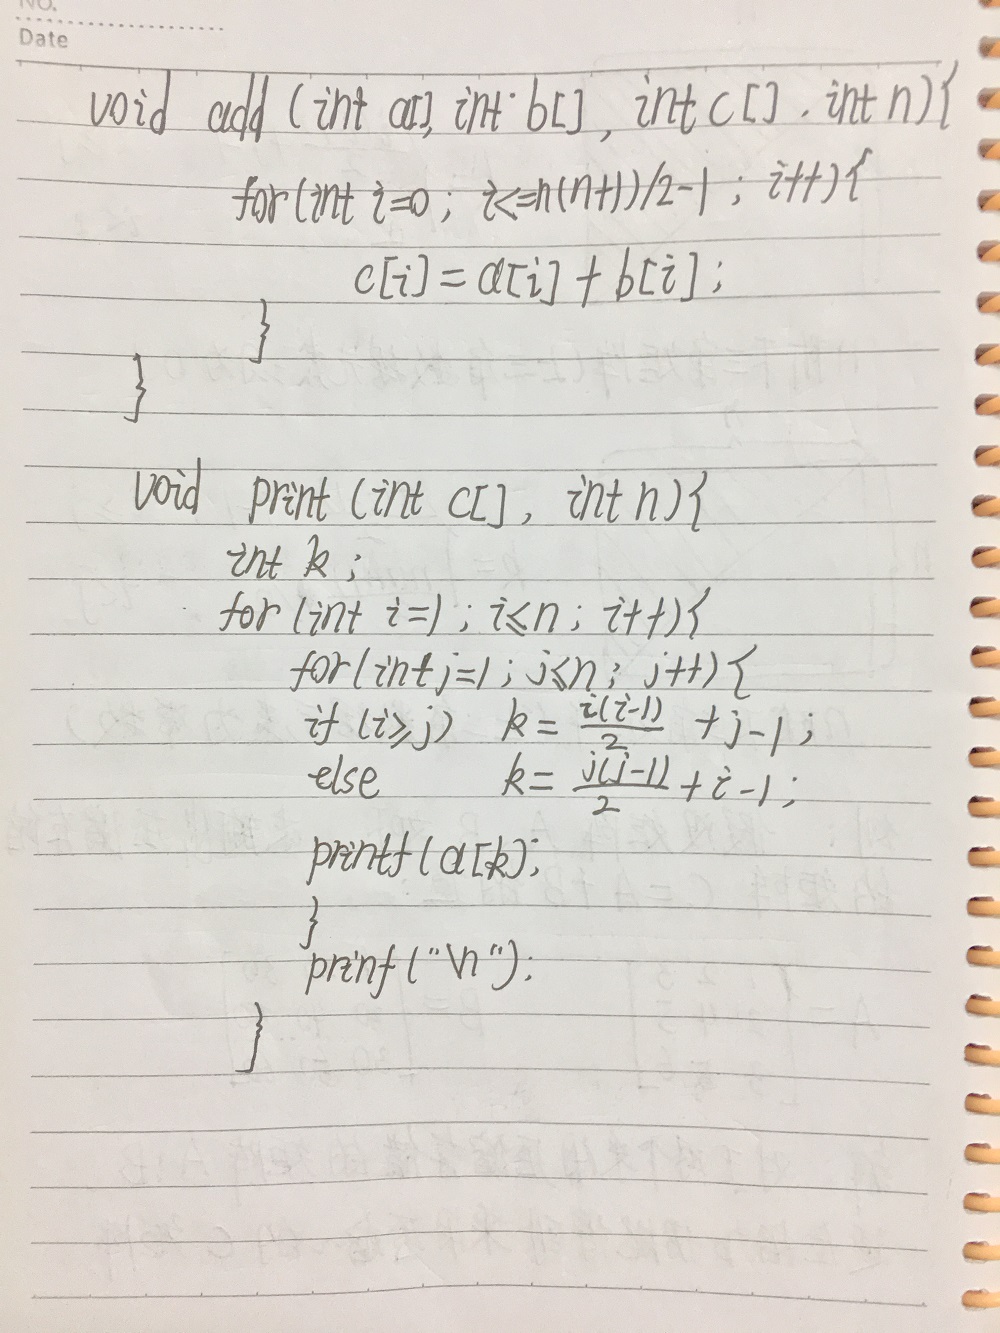 NO.
Date
void add (int a[], int b[], int c[], int n){
for(int i=0; i<=n(n+1)/2-1; i++){
c[i]=a[i]+b[i];
}
}
void print (int c[], int n){
int k;
for (int i=1; i≤n; i++){
for(int j=1; j≤n; j++){
if (i≥j) k= i(i-1)/2 +j-1;
else k= j(j-1)/2 +i-1;
printf(a[k);
}
prinf("\n");
}